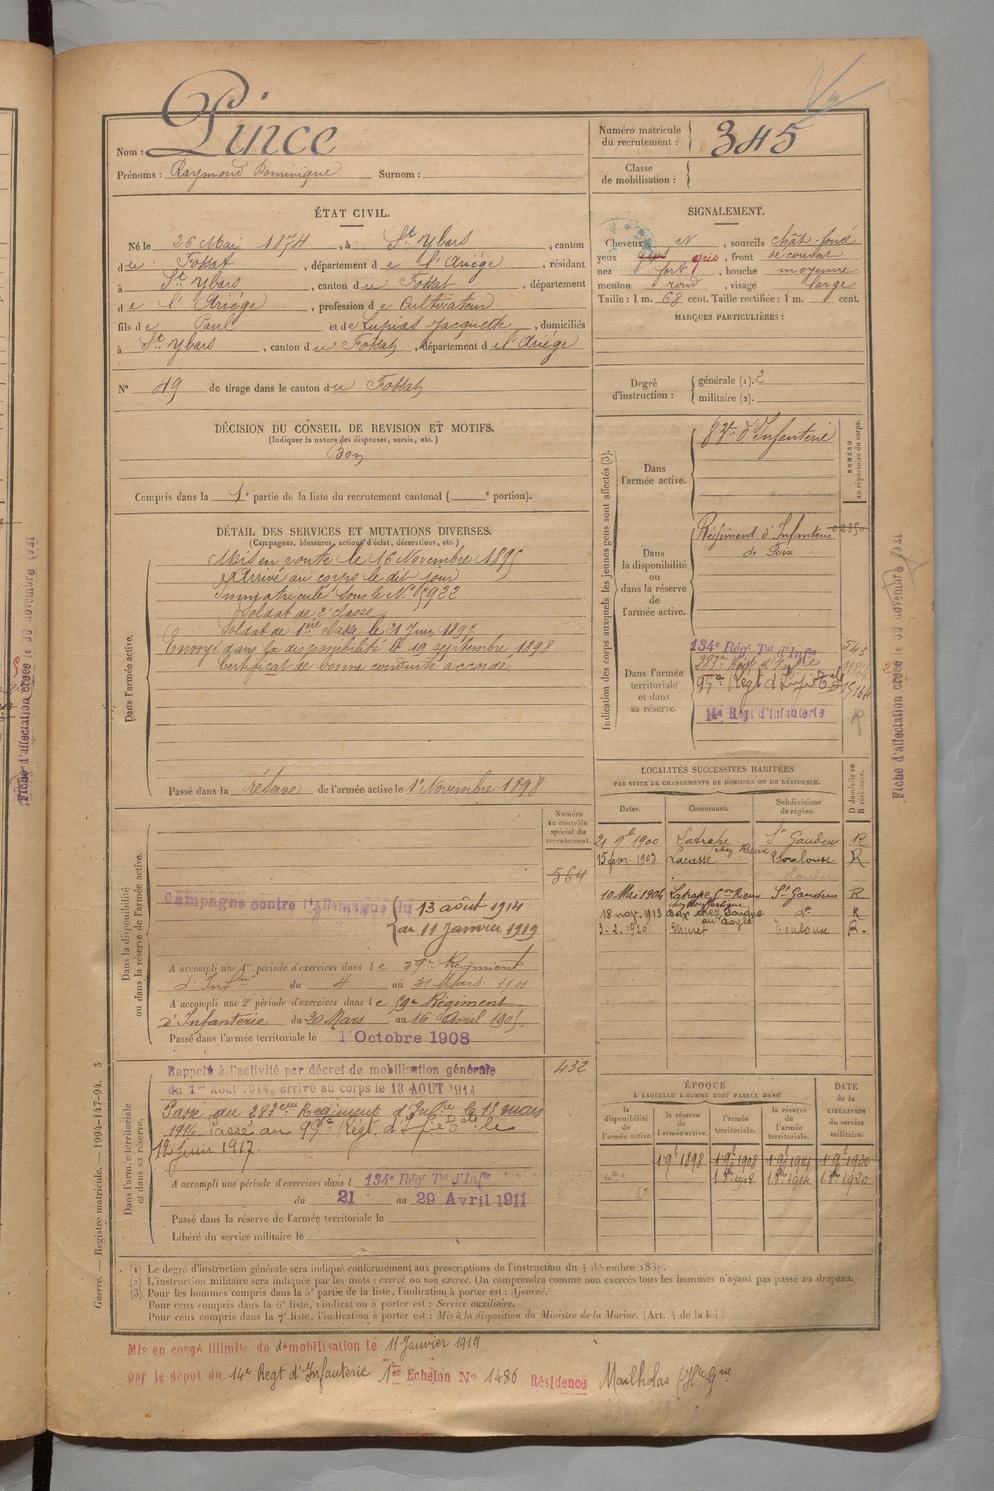 Nom : Pince
Prénoms : Raymond Dominique Surnom :
Numéro matricule du recrutement : 345
Classe de mobilisation :
ÉTAT CIVIL.
Né le 26 Mai 1874, à St Ybars, canton
du Fossat, département de l'Ariége, résidant
à St Ybars, canton du Fossat, département
de l'Ariége, profession de Cultivateur
fils de Paul et de Lupias Jacquette, domiciliés
à St Ybars, canton du Fossat, département de l'Ariége
N° 49 de tirage dans le canton du Fossat
DÉCISION DU CONSEIL DE REVISION ET MOTIFS.
(Indiquer la nature des dispenses, sursis, etc.)
Bon
Compris dans la 1e partie de la liste du recrutement cantonal ( e portion).
SIGNALEMENT.
Cheveux N, sourcils chât-foncé
yeux gris, front découvert
nez fort, bouche moyenne
menton rond, visage large
Taille : 1 m. 68 cent. Taille rectifiée : 1 m. cent.
MARQUES PARTICULIÈRES :
Degré d'instruction : générale (1). 2
militaire (2).
DÉTAIL DES SERVICES ET MUTATIONS DIVERSES.
(Campagnes, blessures, actions d'éclat, décorations, etc.)
Dans l'armée active.
Mis en route le 16 Novembre 1895
Arrivé au corps le dit jour
Immatriculé sous le N° 5922
Soldat de 2e classe
Soldat de 1ère classe le 21 Juin 1897
Envoyé dans la disponibilité le 19 septembre 1898
Certificat de bonne conduite accordé.
Passé dans la réserve de l'armée active le 1er Novembre 1898
Indication des corps auxquels les jeunes gens sont affectés (3).
NUMÉRO au répertoire du corps.
Dans l'armée active.
d'Infanterie
Dans la disponibilité ou dans la réserve de l'armée active.
Régiment d'Infanterie
de Foix
Dans l'armée territoriale et dans sa réserve.
134e Rég' Tal d'Infie
283e Régt d'Infie
97e Regt d'Infie Tale
14e Régt d'Infanterie
Numéro au contrôle spécial du recrutement.
564
432
Dans la disponibilité ou dans la réserve de l'armée active.
Campagne contre l'Allemagne du 13 août 1914
au 11 Janvier 1919
A accompli une 1re période d'exercices dans le 59e Régiment
d'Infie du 4 au 31 Mars 1901
A accompli une 2e période d'exercices dans le 59e Régiment
d'Infanterie du 20 Mars au 16 Avril 1905
Passé dans l'armée territoriale le 1 Octobre 1908
Dans l'armée territoriale et dans sa réserve.
Rappelé à l'activité par décret de mobilisation générale
du 1er Août 1914, arrivé au corps le 13 AOUT 1914
Passé au 283eme Regiment d'Infie le 15 mars
1916. Passé au 97e Regt d'Infie Tale le
12 Juin 1917.
A accompli une période d'exercices dans l 134e Rég' Tal d'Infie
du 21 au 29 Avril 1911
Passé dans la réserve de l'armée territoriale le
Libéré du service militaire le
LOCALITÉS SUCCESSIVES HABITÉES
PAR SUITE DE CHANGEMENTS DE DOMICILE OU DE RÉSIDENCE.
Dates. Communes. Subdivisions de région. D domicile ou R résidence.
21 9bre 1900 Latrape St Gaudens R
15 fevr. 1903 Lacasse Toulouse R
10 Mai 1904 Latrape Con Rieux St Gaudens R.
18 nov. 1913 Bax do R.
3-2.1920 Muret Toulouse R.
ÉPOQUE
À LAQUELLE L'HOMME DOIT PASSER DANS
la disponibilité de l'armée active. la réserve de l'armée active. l'armée territoriale. la réserve de l'armée territoriale.
DATE de la LIBÉRATION du service militaire.
1 9e 1898 1 9e 1908 1 9e 1914 1 9e 1920
1 8e 1908 1 8e 1914 1 8e 1920
(1) Le degré d'instruction générale sera indiqué conformément aux prescriptions de l'instruction du 4 décembre 1889.
(2) L'instruction militaire sera indiquée par les mots : exercé ou non exercé. On comprendra comme non exercés tous les hommes n'ayant pas passé au drapeau.
(3) Pour les hommes compris dans la 5e partie de la liste, l'indication à porter est : Ajourné.
Pour ceux compris dans la 6e liste, l'indication à porter est : Service auxiliaire.
Pour ceux compris dans la 7e liste, l'indication à porter est : Mis à la disposition du Ministre de la Marine. (Art. 4 de la loi)
Mis en congé illimité de démobilisation le 11 Janvier 1919
par le dépôt du 14e Regt d'Infanterie 1er Echelon N° 1486 Résidence Mailholas (Hte Gne
Guerre. — Registre matricule. — 1994-147-94. 3
Fiche d'affectation créée le 30 novembre